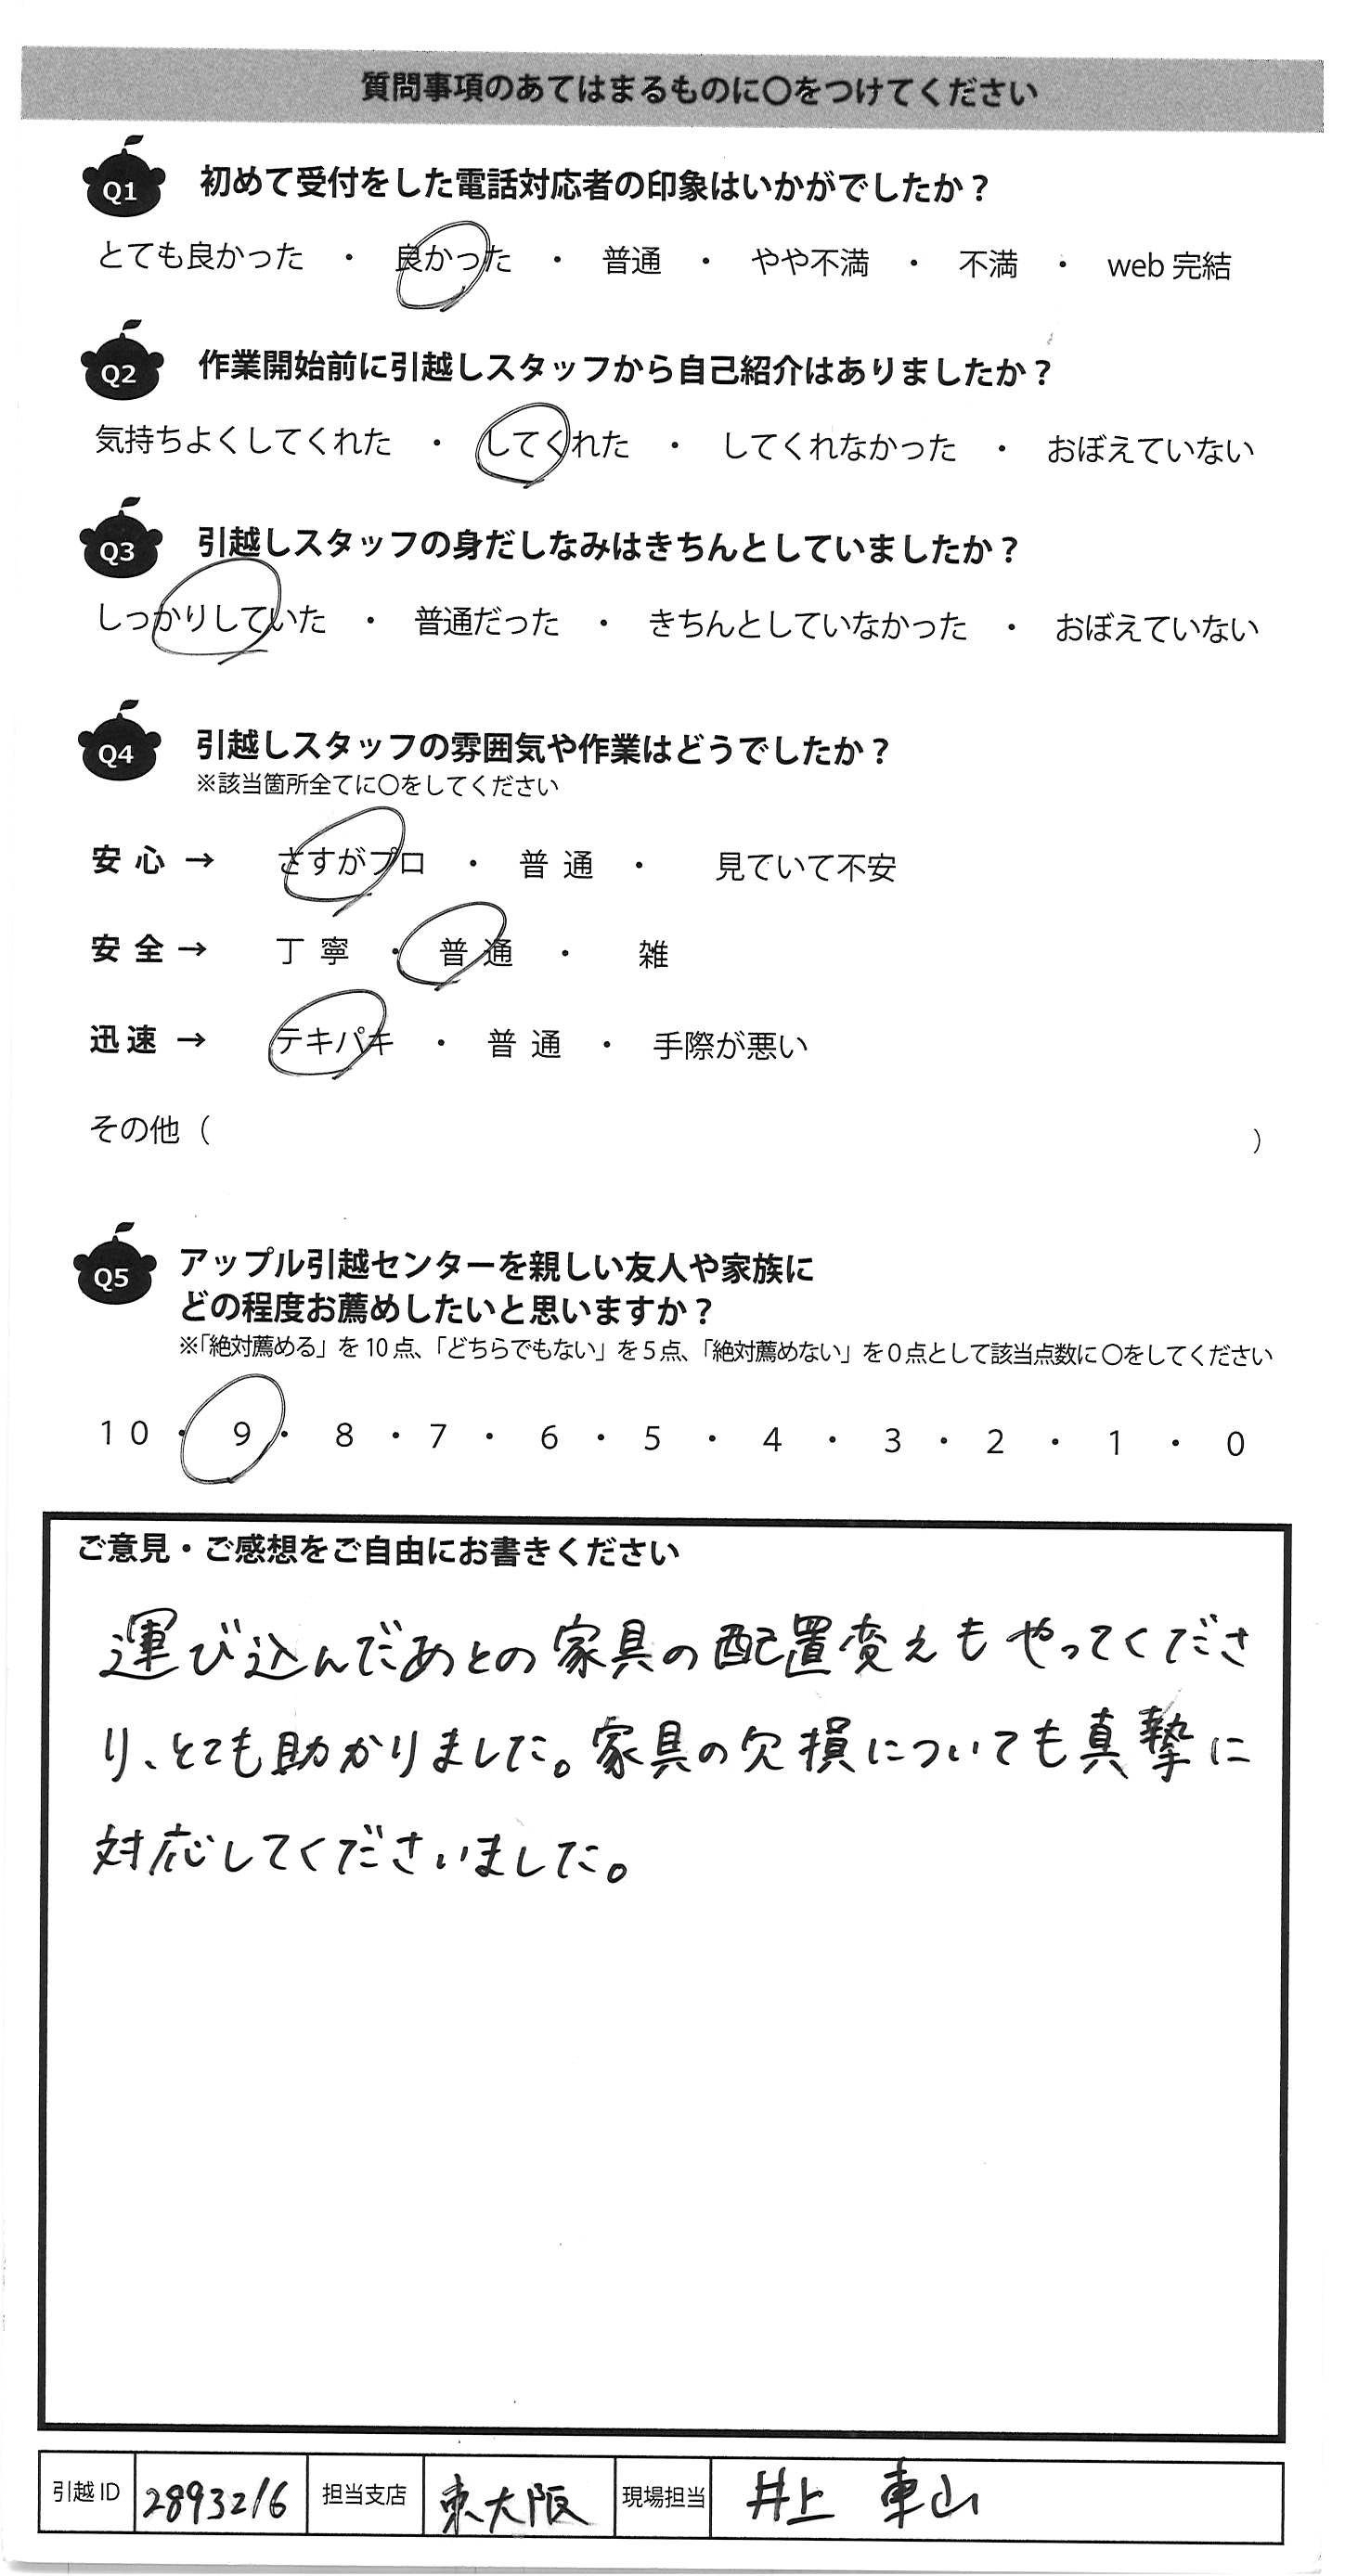 質問事項のあてはまるものに〇をつけてください
Q1 初めて受付をした電話対応者の印象はいかがでしたか？
とても良かった ・ 良かった ・ 普通 ・ やや不満 ・ 不満 ・ web 完結
Q2 作業開始前に引越しスタッフから自己紹介はありましたか？
気持ちよくしてくれた ・ してくれた ・ してくれなかった ・ おぼえていない
Q3 引越しスタッフの身だしなみはきちんとしていましたか？
しっかりしていた ・ 普通だった ・ きちんとしていなかった ・ おぼえていない
Q4 引越しスタッフの雰囲気や作業はどうでしたか？
※該当箇所全てに〇をしてください
安心 → さすがプロ ・ 普通 ・ 見ていて不安
安全 → 丁寧 ・ 普通 ・ 雑
迅速 → テキパキ ・ 普通 ・ 手際が悪い
その他（ ）
Q5 アップル引越センターを親しい友人や家族に
どの程度お薦めしたいと思いますか？
※「絶対薦める」を10点、「どちらでもない」を5点、「絶対薦めない」を0点として該当点数に〇をしてください
10 ・ 9 ・ 8 ・ 7 ・ 6 ・ 5 ・ 4 ・ 3 ・ 2 ・ 1 ・ 0
ご意見・ご感想をご自由にお書きください
運び込んだあとの家具の配置変えもやってくださ
り、とても助かりました。家具の欠損についても真摯に
対応してくださいました。
引越ID 2893216 担当支店 東大阪 現場担当 井上 車山